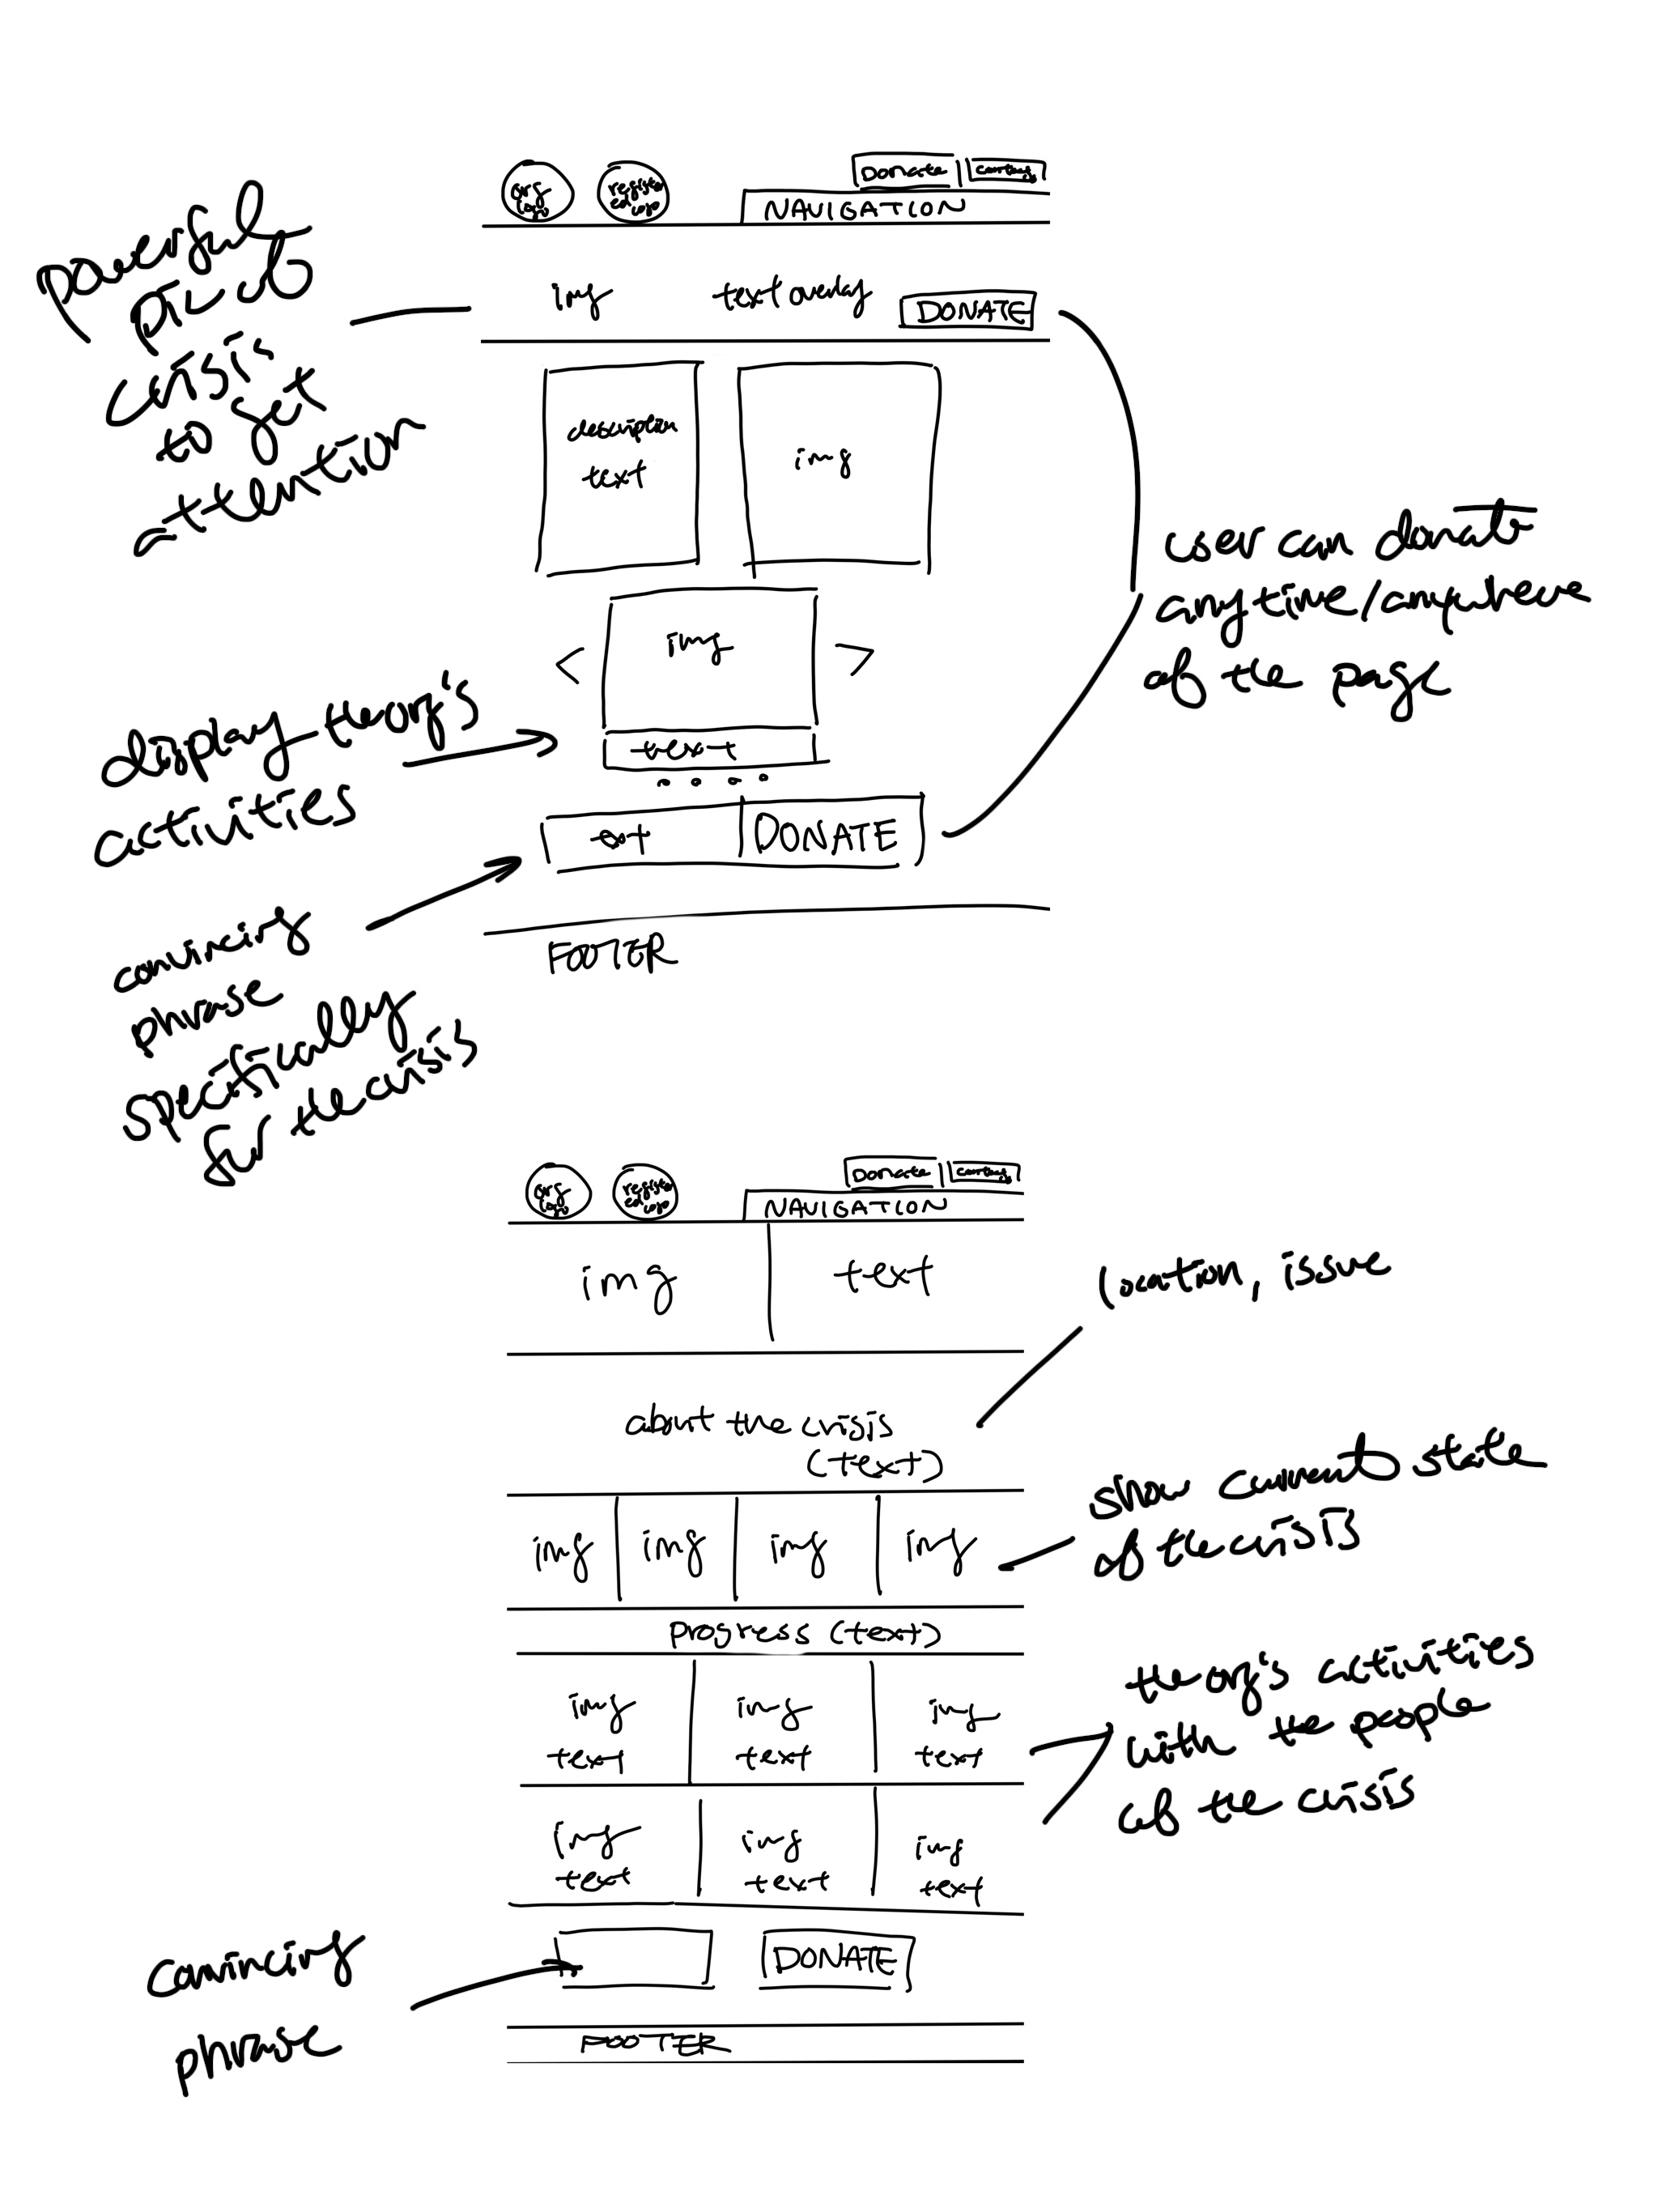 org
logo
register
ed
logo
Donate
contact
NAVIGATION
powerful
pic of
crisis
to get
attention
img
text overlay
DONATE
description
text
img
user can donate
anytime/anywhere
of the page
<
img
>
display the org's
activities
text
text
DONATE
convincing
phrase
specifically
for the crisis
FOOTER
org
logo
register
ed
logo
Donate
contact
NAVIGATION
img
text
location, issue
about the crisis
(text)
img
img
img
img
show current state
of the crisis
progress (text)
img
text
img
text
img
text
the org's activities
with the people
of the crisis
img
text
img
text
img
text
convincing
phrase
DONATE
FOOTER